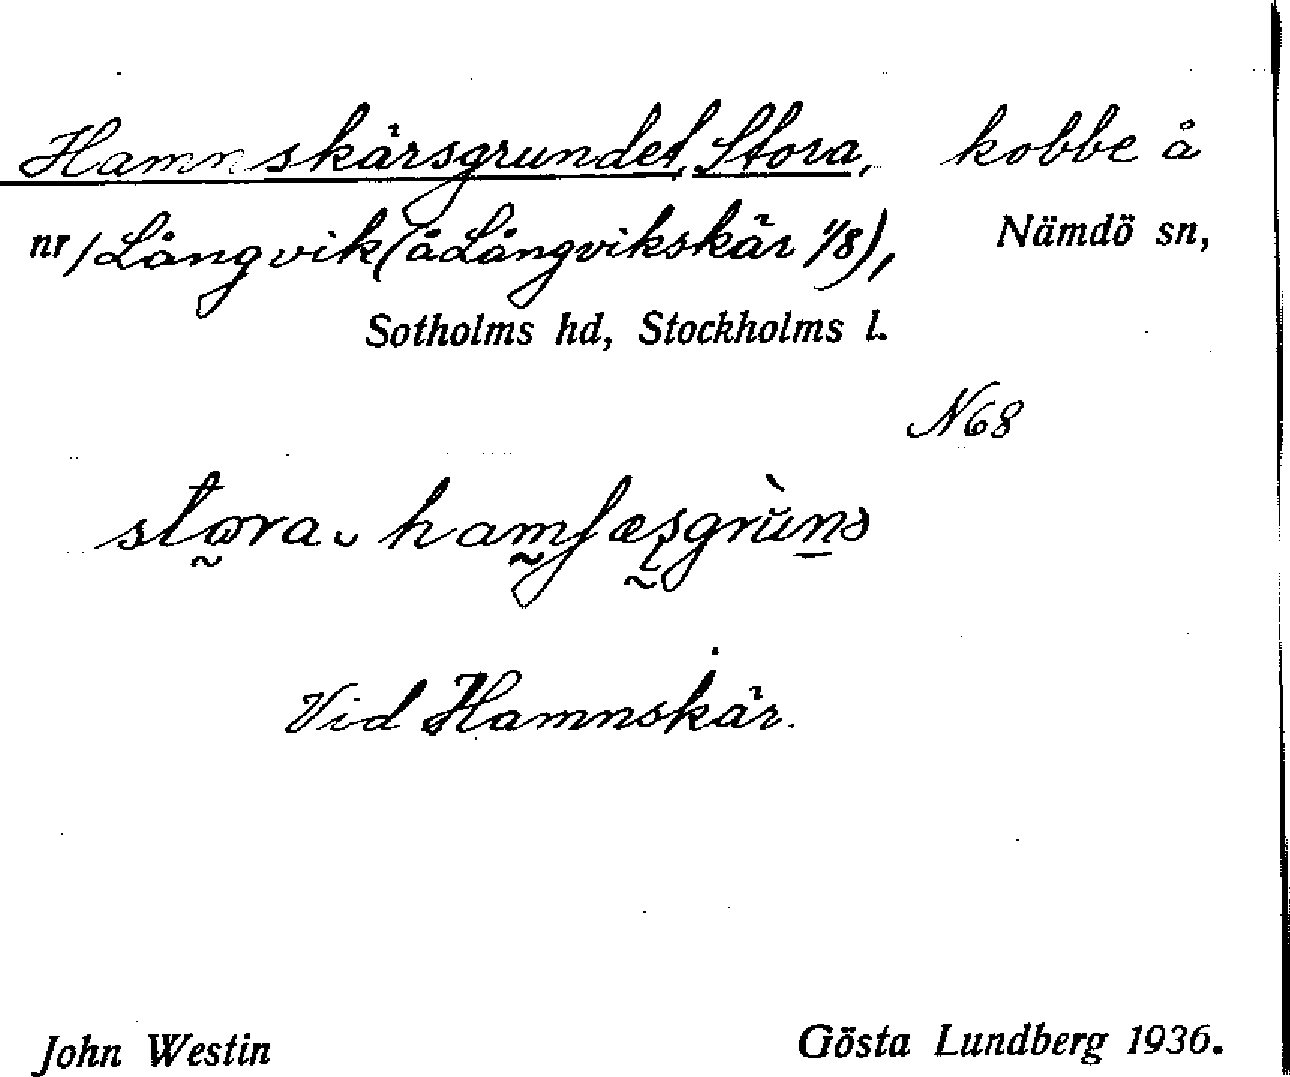 Hamnskärsgrundet, Stora, kobbe å
nr/Långvik (å Långvikskär 1/8), Nämdö sn,
Sotholms hd, Stockholms l.
N68
Vid Hamnskär.
John Westin Gösta Lundberg 1936.